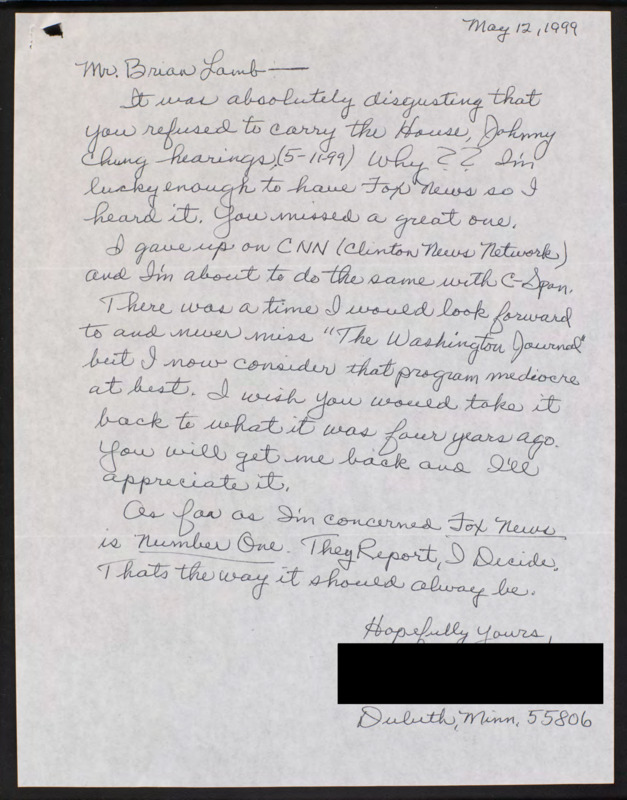 May 12, 1999
Mr. Brian Lamb —
It was absolutely disgusting that
you refused to carry the House, Johnny
Chung hearings, (5-11-99) Why?? I'm
lucky enough to have Fox News so I
heard it. You missed a great one.
I gave up on CNN (Clinton News Network)
and I'm about to do the same with C-Span.
There was a time I would look forward
to and never miss "The Washington Journal"
but I now consider that program mediocre
at best. I wish you would take it
back to what it was four years ago.
You will get me back and I'll
appreciate it.
As far as I'm concerned Fox News
is Number One. They Report, I Decide.
Thats the way it should alway be.
Hopefully Yours,
Duluth, Minn. 55806